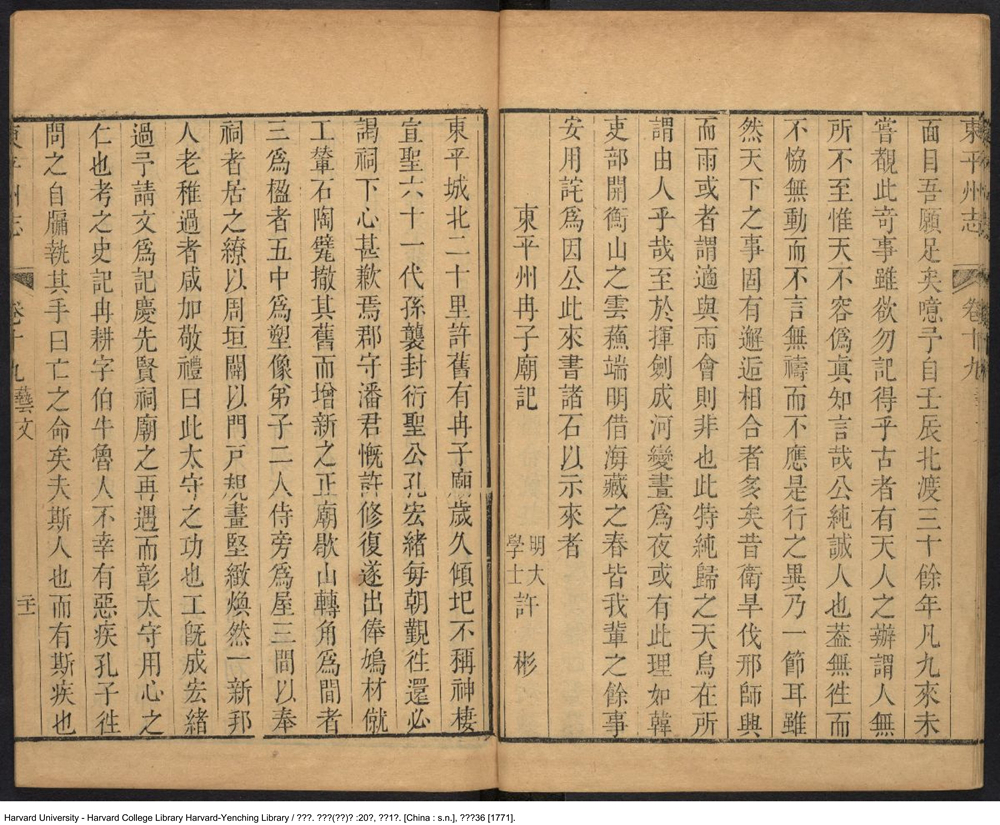 東平州志 卷十九
面目吾願足矣噫予自壬辰北渡三十餘年凡九來未
嘗覩此竒事雖欲勿記得乎古者有天人之辦謂人無
所不至惟天不容僞眞知言哉公純誠人也葢無徃而
不恊無動而不言無禱而不應是行之異乃一節耳雖
然天下之事固有邂逅相合者多矣昔衛旱伐邢師與
而雨或者謂適與雨會則非也此特純歸之天烏在所
謂由人乎哉至於揮劍成河變晝爲夜或有此理如韓
吏部開衡山之雲蘓端明借海藏之春皆我輩之餘事
安用詫爲因公此來書諸石以示來者
東平州冉子廟記 明大學士許 彬
東平城北二十里許舊有冉子廟歲久傾圮不稱神棲
宣聖六十一代孫襲封衍聖公孔宏緒每朝覲徃還必
謁祠下心甚歉焉郡守潘君慨許修復遂出俸鳩材僦
工輦石陶甓撤其舊而增新之正廟歇山轉角爲間者
三爲楹者五中爲塑像弟子二人侍旁爲屋三間以奉
祠者居之繚以周垣闢以門戸規畫堅緻煥然一新邦
人老稚過者咸加敬禮曰此太守之功也工旣成宏緒
過予請文爲記慶先賢祠廟之再遇而彰太守用心之
仁也考之史記冉耕字伯牛魯人不幸有惡疾孔子徃
問之自牖執其手曰亡之命矣夫斯人也而有斯疾也
東平州志 卷十九藝文 二十一
Harvard University - Harvard College Library Harvard-Yenching Library / ???. ???(??)? :20?, ??1?. [China : s.n.], ???36 [1771].